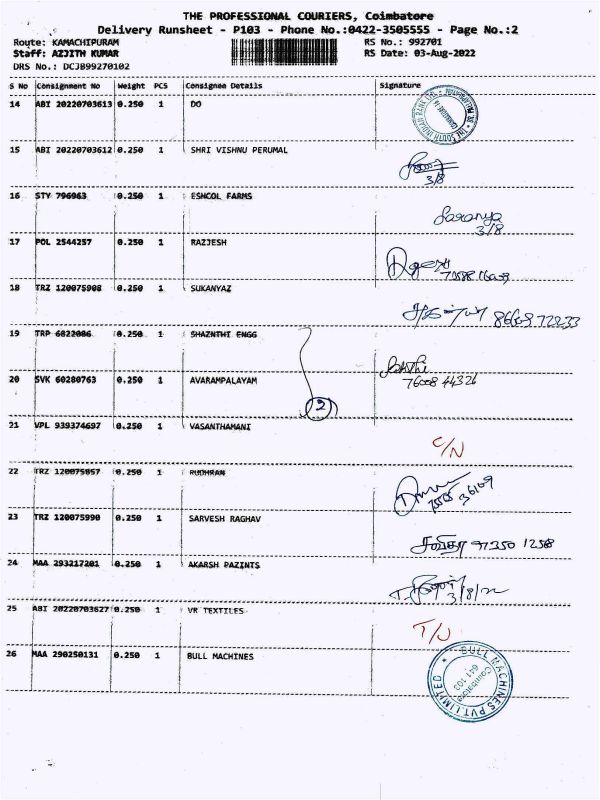 THE PROFESSIONAL COURIERS, Coimbatore
Delivery Runsheet - P103 - Phone No.:0422-3505555 - Page No.:2
Route: KAMACHIPURAM RS No.: 992701
Staff: AZJITH KUMAR RS Date: 03-Aug-2022
DRS No.: DCJB99270102
S No Consignment No Weight PCS Consignee Details Signature
14 ABI 20220703613 0.250 1 DO
15 ABI 20220703612 0.250 1 SHRI VISHNU PERUMAL
3/8
16 STY 796963 0.250 1 ESHCOL FARMS
Saranya
3/8
17 POL 2544257 0.250 1 RAZJESH
18 TRZ 120075908 0.250 1 SUKANYAZ
72233
19 TRP 6822086 0.250 1 SHAZNTHI ENGG
20 SVK 60280763 0.250 1 AVARAMPALAYAM
76008 44326
2
21 VPL 939374697 0.250 1 VASANTHAMANI
C/N
22 TRZ 120075857 0.250 1 RUDHRAN
23 TRZ 120075990 0.250 1 SARVESH RAGHAV
1258
24 MAA 293217201 0.250 1 AKARSH PAZINTS
3/8/22
25 ABI 20220703627 0.250 1 VR TEXTILES
26 MAA 290250131 0.250 1 BULL MACHINES
BULL MACHINES PVT LIMITED
Coimbatore
641 103